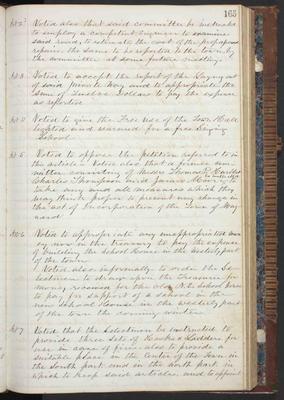 165
Art 2. Voted also that said committee be instructed
to employ a competent Engineer to examine
said road, to estimate the cost of the proposed
repairs the same to be reported to the town by
the committee at some future meeting.
Art 3. Voted to accept the report of the Laying out
of said private Way and to appropriate the
sum of Twelve Dollars to pay the expense
as reported
Art 4. Voted to give the Free use of the Town Hall
lighted and warmed for a free Singing
School.
Art 5. Voted to oppose the petition referred to in
the article. Voted also that a
consisting of Messrs Thomas
Charles Thompson and James
take any and all measures which they
may think proper to prevent any change in
the act of Incorporation of the Town of Way
land
Art 6 Voted to appropriate any
ey now in the treasury to pay the expense
of building the School House in the Westerly part
of the town
Voted also informally to order the Se
lectmen to draw upon the treasurer for
money received for the old School
to pay for support of a school in the
new School House in the Westerly part
of the town the coming winter
Art 7 Voted that the Selectmen be instructed to
provide three sets of Hooks & Ladders for
use in case of fire: also to provide a
suitable place in the Center of the town in
the South part and in the North part in
which to keep said articles and to appoint